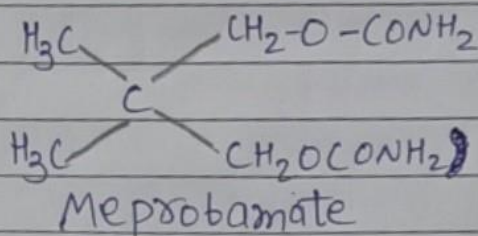 H₃C CH₂-O-CONH₂
C
H₃C CH₂OCONH₂
Meprobamate